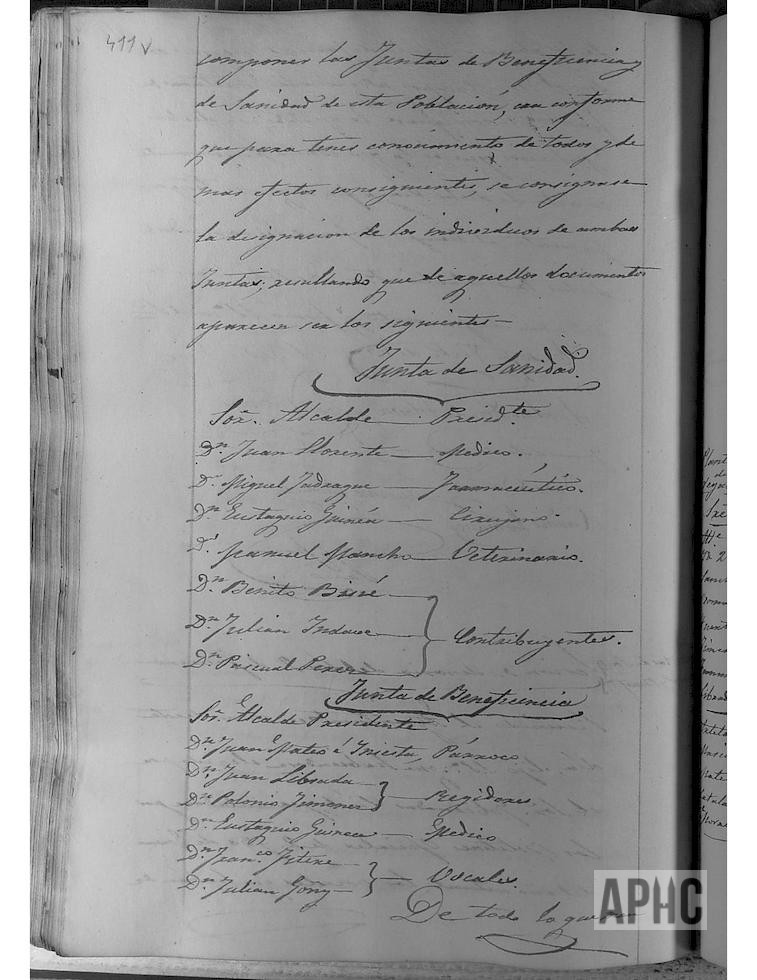 411v
componer las Juntas de Beneficencia y
de Sanidad de esta Poblacion, con conforme
que para tener conocimiento de todos y de
mas efectos consiguientes, se consignase
la designacion de los individuos de ambas
Juntas; resultando que de aquellos documentos
aparecen ser los siguientes —
Junta de Sanidad.
Sor. Alcalde — Presid.te
Dn Juan Llorente — Medico.
Dn Miguel Jadraque — Farmacéutico.
Dn Eustaquio — Cirujano.
Dn Manuel Mancho — Veterinario.
Dn Benito —
Dn Julian — Contribuyentes.
Dn Pascual Perez
Junta de Beneficencia
Sor. Alcalde Presidente
Dn Juan Mateo é Iniesta, Párroco
Dn Juan Librada
Dn Polonio Jimenez — Regidores
Dn Eustaquio — Medico
Dn Fran.co
Dn Julian Goñy — Vocales.
De todo lo que
APHC